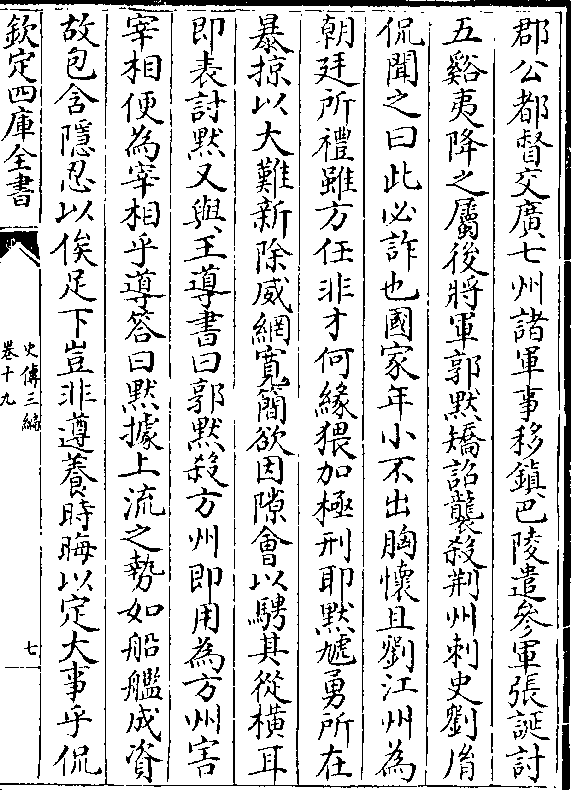 郡公都督交廣七州諸軍事移鎮巴陵遣參軍張誕討
五谿夷降之屬後將軍郭默矯詔襲殺荆州刺史劉𦙍
侃聞之曰此必詐也國家年小不出胸懷且劉江州為
朝廷所禮雖方任非才何緣猥加極刑耶默虓勇所在
暴掠以大難新除威網寛簡欲因隙會以騁其從橫耳
即表討默又與王導書曰郭默殺方州即用為方州害
宰相便為宰相乎導答曰默據上流之勢如船艦成資
故包含隱忍以俟足下豈非遵養時晦以定大事乎侃
欽定四庫全書
史傳三編
卷十九
七